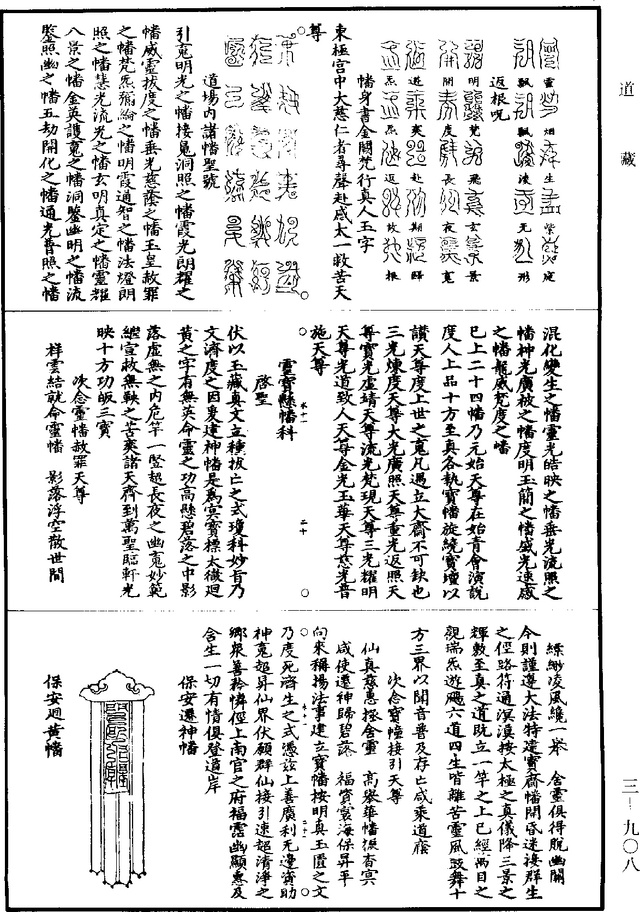 道藏
三一九〇八
靈烟生紫庭
飄飄淩無形
返根呪
明梵飛玄景
開度長夜魂
遊爽赴期歸
炁炁返故根
幡身書金闕梵行真人玉字
東極宮中大慈仁者尋聲赴感太一救苦天
尊
道場内諸幡聖號
引魂明光之幡接魂洞照之幡霞光朗耀之
幡威靈拔度之幡垂光慈蔭之幡玉皇赦罪
之幡梵炁彌綸之幡明霞通知之幡法燈朗
照之幡慧光流光之幡玄明真定之幡靈耀
八景之幡金英護魂之幡洞鑒幽明之幡流
鑒照幽之幡五劫開化之幡通光普照之幡
混化變生之幡靈光皓映之幡垂光流照之
幡神光廣被之幡度明玉簡之幡威光速感
之幡龍威梵度之幡
已上二十四幡乃元始天尊在始青會演說
度人上品十方至真各執寶幡旋繞寶壇以
讃天尊度上世之魂凡遇立大齋不可缺也
三光煉度天尊大光廣照天尊重光返照天
尊寶光虛靖天尊流光梵現天尊三光耀明
天尊光道致人天尊金光玉華天尊慈光普
施天尊
靈寶懸幡科
啓聖
伏以玉藏真文立種拔亡之式瓊科妙旨乃
文濟度之因爰建神幡是爲冥寶標太微迴
黃之字有無英命靈之功高懸碧落之中影
落虛無之内危竿一竪超長夜之幽魂妙範
總宣救無鞅之苦爽諸天齊到萬聖臨軒光
映十方功皈三寶
次念靈幡赦罪天尊
祥雲結就命靈幡　影落浮空散世間
縹緲凌風纔一舉　含靈俱得脫幽關
今則謹遵大法特建寶齋幡開昏迷接群生
之徑路符通溟涬按太極之真儀降三景之
輝敷至真之道既立一竿之上已經萬目之
觀瑞炁遊颺六道四生皆離苦靈風鼓舞十
方三界以聞音普及存亡咸乘道廕
次念寶幢接引天尊
仙真慈惠拯含靈　高舉華幡振杳冥
咸使遷神歸碧落　福資寰海保昇平
向來稱揚法事建立寶幡按明真玉匱之文
乃度死濟生之式憑茲上善廣利無邊資助
神魂超昇仙界伏願群仙接引速超清淨之
鄉衆善矜憐徑上南宮之府福霑幽顯惠及
含生一切有情俱登道岸
保安遷神幡
保安迴黃幡